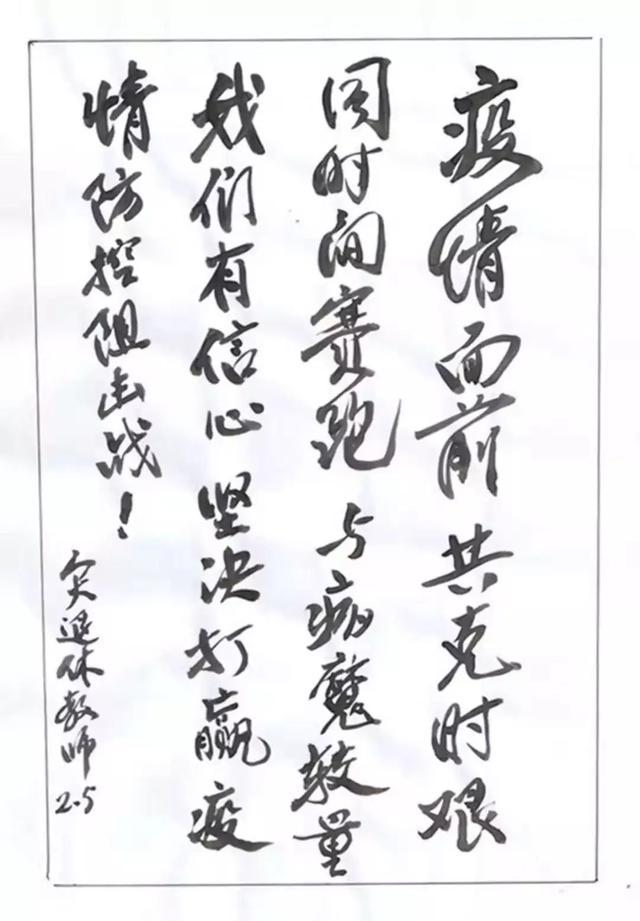 疫情面前 共克时艰
同时间赛跑 与病魔较量
我们有信心 坚决打赢疫
情防控阻击战！
退休教师
2.5